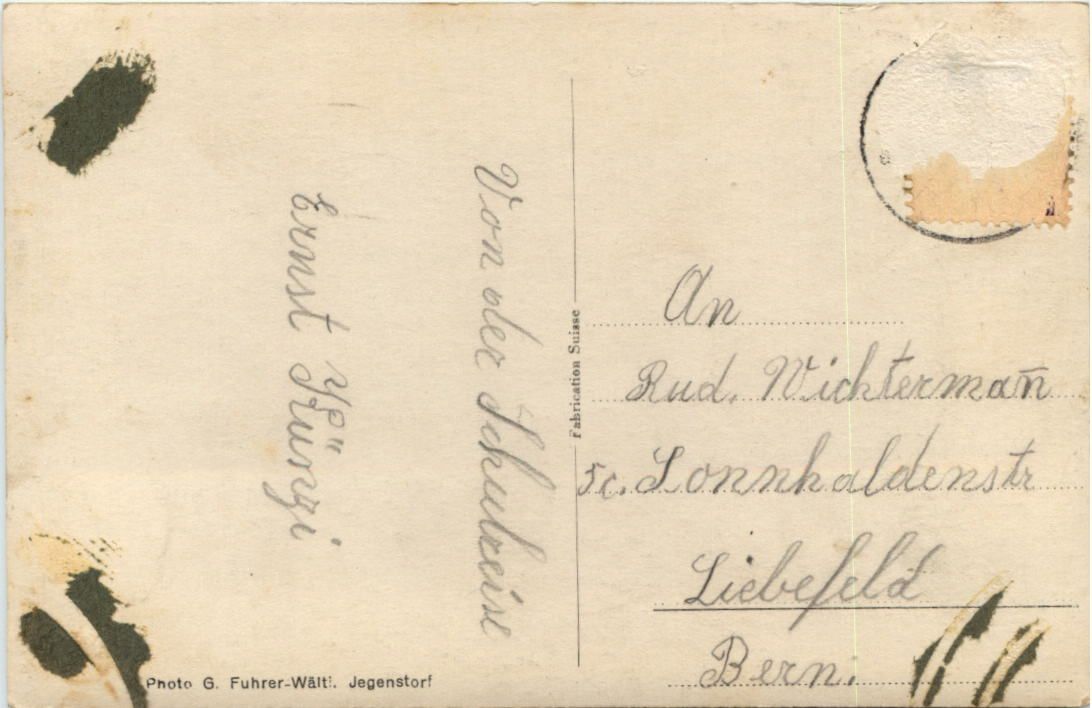 Von der Schulreise
Ernst Kunzi
Fabrication Suisse
An
Rud. Wichtermañ
5c. Sonnhaldenstr
Liebefeld
Bern.
Photo G. Fuhrer-Wälti. Jegenstorf